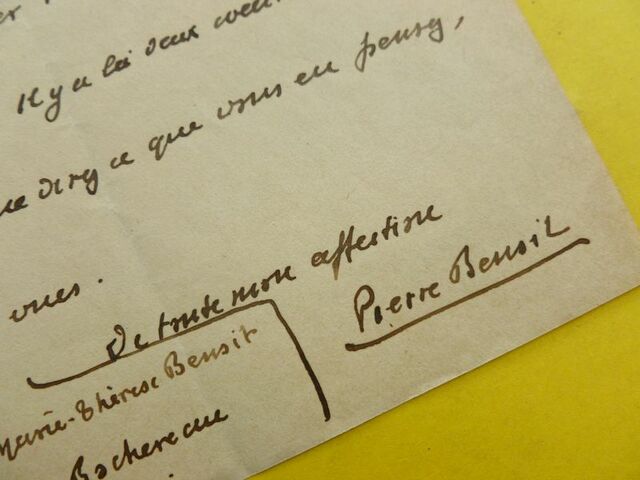 Il y a là deux
me direz ce que vous en pensez,
vues.
De toute mon affection
Pierre Benoit
Marie-Thérèse Benoit
Bachereau